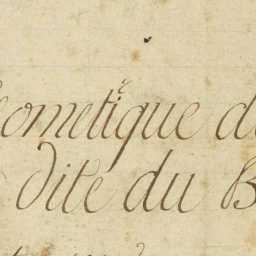 eometrique d
dite du B